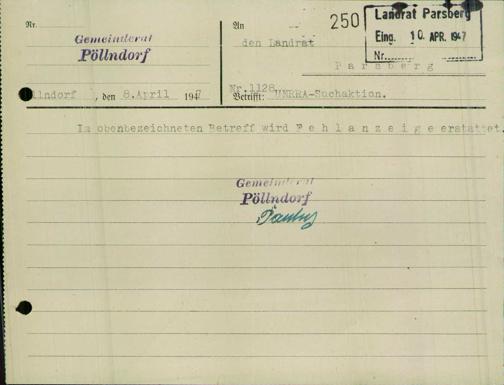 Nr.
Gemeinderat
Pöllndorf
An
den Landrat
Parsberg
250
Landrat Parsberg
Eing. 10. APR. 1947
Nr.
llndorf, den 8.April 1947
Nr.1128
Betrifft: UNRRA-Suchaktion.
Im obenbezeichneten Betreff wird F e h l a n z e i g e erstattet.
Gemeinderat
Pöllndorf